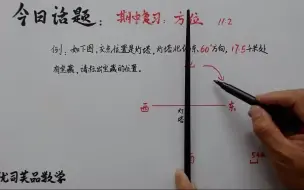 今日话题：期中复习：方位 112
例：如下图，交点位置是灯塔，灯塔北偏东60°方向，17.5千米处
有宝藏，请标出宝藏的位置。
北
西 灯塔 东
优司芙品数学